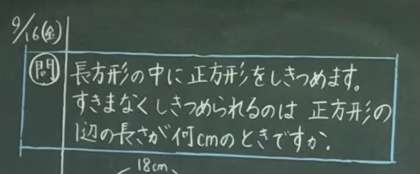 9/16(金)
問 長方形の中に正方形をしきつめます。
すきまなくしきつめられるのは 正方形の
1辺の長さが何cmのときですか。
18cm